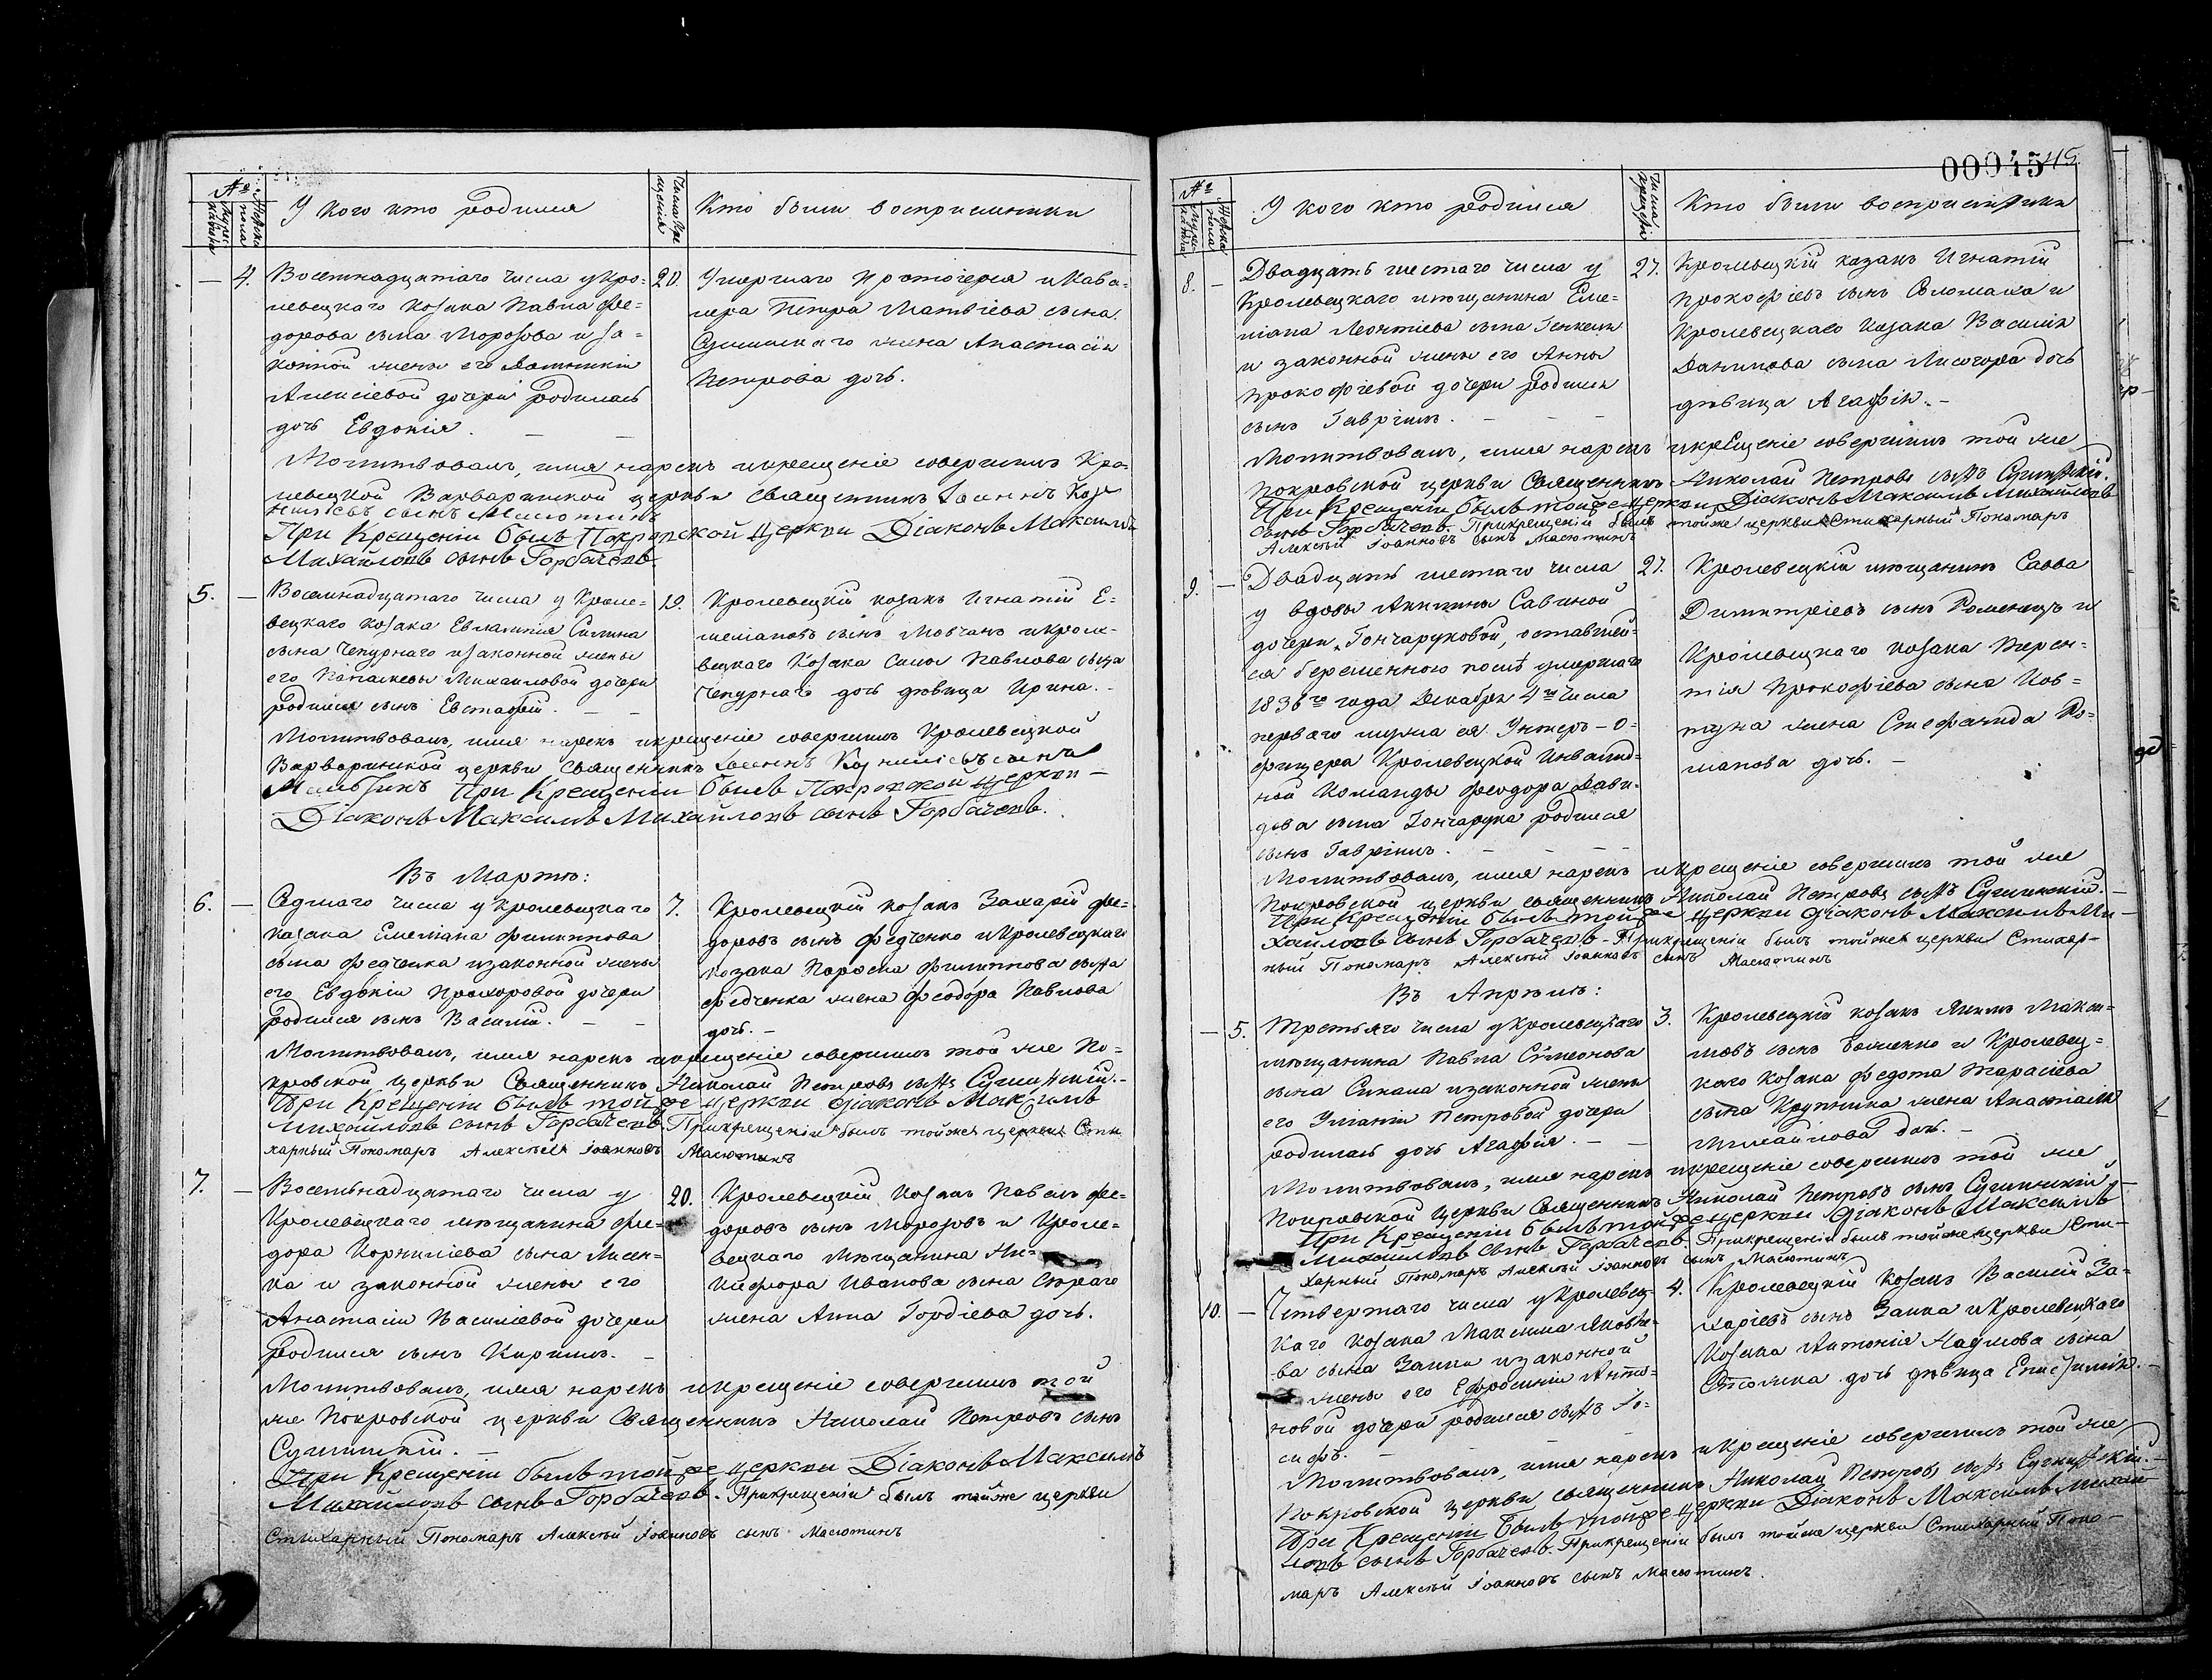 № Мужеска пола Женска пола
У кого кто родился
Числа крещенія
Кто были восприемники
— 4. Восемнадцатаго числа у Кро-
левецкаго козака Павла Фе-
дорова сына Морозова и за-
конной жены его
Алексіевой дочери родилась
дочь Евдокія. — —
20. Умершаго протоіерея и Кава-
лера Петра Матвіева сына
Сушинскаго жена Анастасія
Петрова дочь.
Молитвовалъ, имя нарекъ и крещеніе совершилъ Кро-
левецкой Варваринской церкви Священникъ Іоаннъ
сынъ Масютинъ
При Крещеніи былъ Покровской Церкви Діаконъ Максимъ
Михайловъ сынъ Горбачевъ
5. — Восемнадцатаго числа у Кроле-
вецкаго козака Евлампія Силина
сына Чепурнаго и законной жены
его Параскевы Михаиловой дочери
родился сынъ Евстафій. — —
19. Кролевецкій козакъ Игнатій Е-
меліановъ сынъ Мовчанъ и кроле-
вецкаго Козака Силы Павлова сына
Чепурнаго дочь дѣвица Ирина. -
Молитвовалъ, имя нарекъ и крещеніе совершилъ Кролевецкой
Варваринской церкви Священникъ Іоаннъ Корниліевъ сынъ
Масютинъ При Крещеніи былъ Покровской Церкви —
Діаконъ Максимъ Михайловъ сынъ Горбачевъ.
Въ Мартѣ:
6. — Седмаго числа у Кролевецкаго
козака Емеліана Филиппова
сына Федченка и законной жены
его Евдокіи Прохоровой дочери
родился сынъ Василій. — —
7. Кролевецкій козакъ Захарій Фе-
доровъ сынъ Федченко и Кролевецкаго
козака Филиппова сына
Федченка жена Феодора Павлова
дочь. -
Молитвовалъ, имя нарекъ и крещеніе совершилъ той же По-
кровской церкви Священникъ Николай Петровъ сынъ Сушинскій. -
При Крещеніи былъ той же церкви Діаконъ Максимъ
Михайловъ сынъ Горбачевъ. При крещеніи былъ той же церкви Сти-
харный Пономарь Алексѣй Іоанновъ Масютинъ
7. — Восемьнадцатаго числа у
Кролевецкаго мѣщанина Фе-
дора Корниліева сына Лисен-
ка и законной жены его
Анастасіи Василіевой дочери
родился сынъ Кириллъ. —
20. Кролевецкій козакъ Павелъ Фе-
доровъ сынъ Морозовъ и Кроле-
вецкаго Мѣщанина Ни-
кифора Иванова сына
жена Анна Гордіева дочь.
Молитвовалъ, имя нарекъ и крещеніе совершилъ той
же Покровской церкви Священникъ Николай Петровъ сынъ
Сушинскій. —
При Крещеніи былъ той же церкви Діаконъ Максимъ
Михайловъ сынъ Горбачевъ. При крещеніи былъ той же церкви
Стихарный Пономарь Алексѣй Іоанновъ сынъ Масютинъ
00045 45
№ Мужеска пола Женска пола
У кого кто родился
Числа крещенія
Кто были восприемники
8. — Двадцать шестаго числа у
Кролевецкаго мѣщанина Еме-
ліана Леонтіева сына
и законной жены его Анны
Прокофіевой дочери родился
сынъ Гавріилъ. — — —
27. Кролевецкій казакъ Игнатій
Прокофіевъ сынъ Соломаха и
Кролевецкаго козака Василія
Данилова сына Лисогора дочь
дѣвица Агафія. -
Молитвовалъ, имя нарекъ и крещеніе совершилъ той же
Покровской церкви Священникъ Николай Петровъ сынъ Сушинскій.
При Крещеніи былъ той же церкви Діаконъ Максимъ Михайловъ
сынъ Горбачевъ. При крещеніи былъ той же церкви Стихарный Пономарь
Алексѣй Іоанновъ сынъ Масютинъ
9. — Двадцать шестаго числа
у вдовы Акилины Савиной
дочери Гончаруковой, оставшей-
ся беременною послѣ умершаго
1836го года Декабря 4го числа
перваго мужа ея Унтеръ-О-
фицера Кролевецкой Инвалид-
ной Команды Феодора Дави-
дова сына Гончарука родился
сынъ Гавріилъ. — — — —
27. Кролевецкій мѣщанинъ Савва
Димитріевъ сынъ Роменецъ и
Кролевецкаго козака Терен-
тія Прокофіева сына Ков-
туна жена Стефанида Ро-
манова дочь. —
Молитвовалъ, имя нарекъ и крещеніе совершилъ той же
Покровской церкви священникъ Николай Петровъ сынъ Сушинскій. —
При Крещеніи былъ той же церкви Діаконъ Максимъ Ми-
хайловъ сынъ Горбачевъ - При крещеніи былъ той же церкви Стихар-
ный Пономарь Алексѣй Іоанновъ сынъ Масютинъ
Въ Апрѣлѣ:
— 5. Третьяго числа у Кролевецкаго
мѣщанина Павла Симеонова
сына и законной жены
его Уліаніи Петровой дочери
родилась дочь Агафія. — —
3. Кролевецкій козакъ Якимъ Макси-
мовъ сынъ и Кролевец-
каго козака Федота Тарасіева
сына Крупника жена Анастасія
Михайлова дочь. —
Молитвовалъ, имя нарекъ и крещеніе совершилъ той же
Покровской церкви Священникъ Николай Петровъ сынъ Сушинскій. —
При Крещеніи былъ той же церкви Діаконъ Максимъ
Михайловъ сынъ Горбачевъ. При крещеніи былъ той же церкви Сти-
харный Пономарь Алексѣй Іоанновъ сынъ Масютинъ
10. — Четвертаго числа у Кролевец-
каго козака Максима Яковле-
ва сына Заики и законной
жены его Ефросиніи Анто-
новой дочери родился сынъ Іо-
сифъ. —
4. Кролевецкій козакъ Василій За-
харіевъ сынъ Заика и Кролевецкаго
козака Антонія Наумова сына
дочь дѣвица
Молитвовалъ, имя нарекъ и крещеніе совершилъ той же
Покровской церкви священникъ Николай Петровъ сынъ Сушинскій. —
При Крещеніи былъ той же церкви Діаконъ Максимъ Михай-
ловъ сынъ Горбачевъ. При крещеніи былъ той же церкви Стихарный Поно-
марь Алексѣй Іоанновъ сынъ Масютинъ.